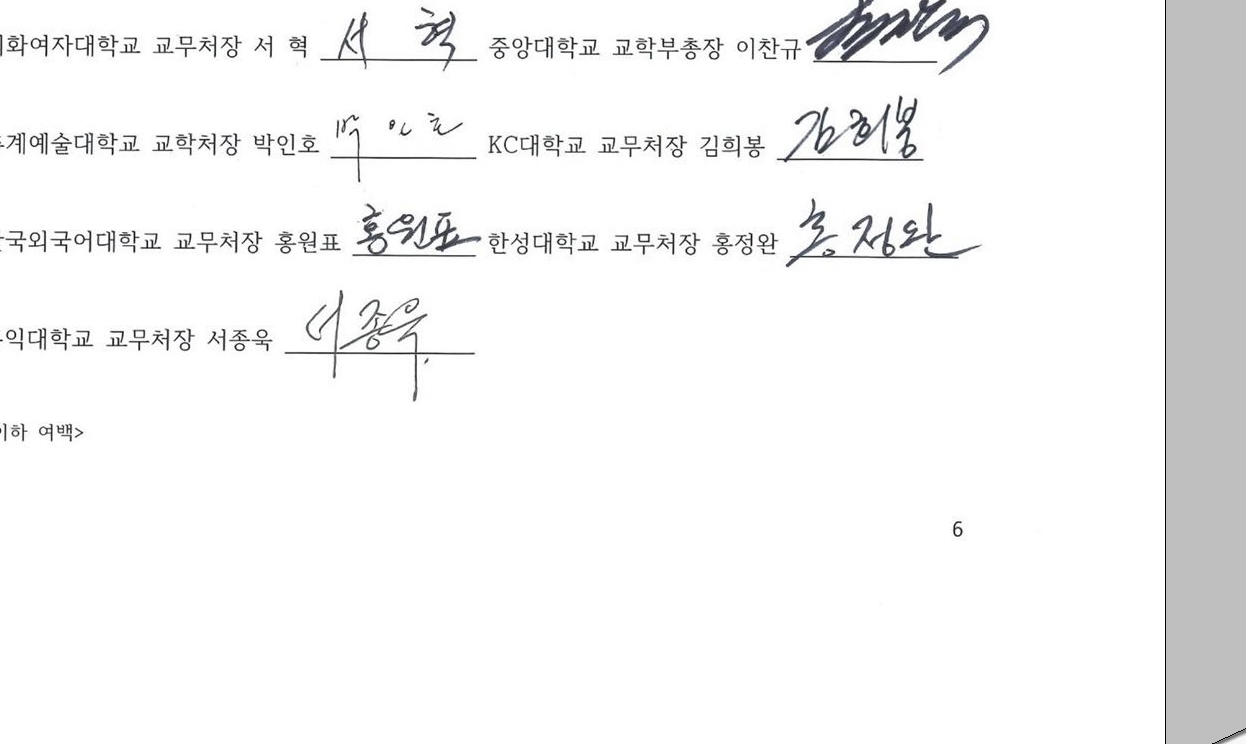 화여자대학교 교무처장 서 혁 서 혁 중앙대학교 교학부총장 이찬규
계예술대학교 교학처장 박인호 박인호 KC대학교 교무처장 김희봉 김희봉
국외국어대학교 교무처장 홍원표 홍원표 한성대학교 교무처장 홍정완 홍정완
익대학교 교무처장 서종욱 서종욱
이하 여백>
6